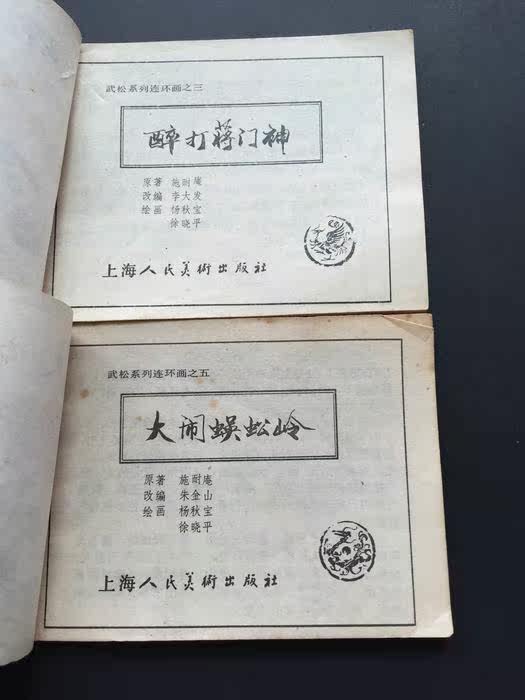 武松系列连环画之三
醉打蒋门神
原著 施耐庵
改编 李大发
绘画 杨秋宝
徐晓平
上海人民美術出版社
武松系列连环画之五
大闹蜈蚣岭
原著 施耐庵
改编 朱金山
绘画 杨秋宝
徐晓平
上海人民美術出版社